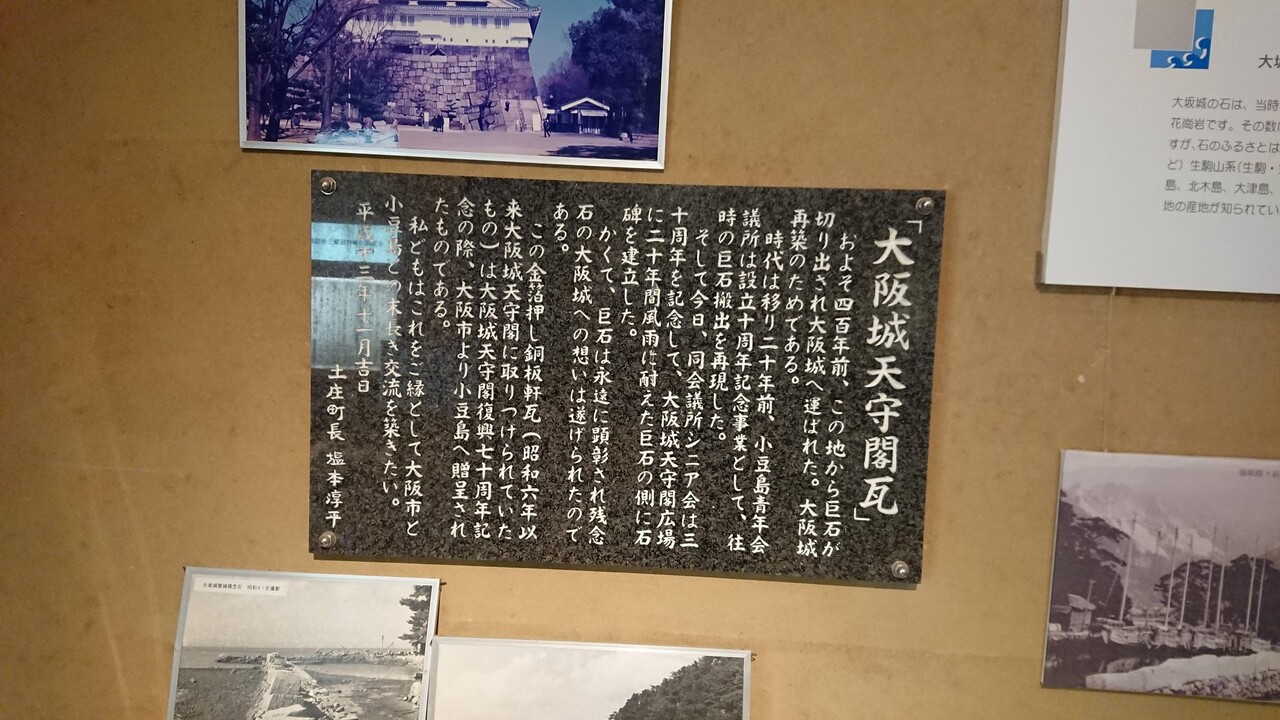 「大阪城天守閣瓦」
およそ四百年前、この地から巨石が
切り出され大阪城へ運ばれた。大阪城
再築のためである。
時代は移り二十年前、小豆島青年会
議所は設立十周年記念事業として、往
時の巨石搬出を再現した。
そして今日、同会議所シニア会は三
十周年を記念して、大阪城天守閣広場
に二十年間風雨に耐えた巨石の側に石
碑を建立した。
かくて、巨石は永遠に顕彰され残念
石の大阪城への想いは遂げられたので
ある。
この金箔押し銅板軒瓦(昭和六年以
来大阪城天守閣に取りつけられていた
もの)は大阪城天守閣復興七十周年記
念の際、大阪市より小豆島へ贈呈され
たものである。
私どもはこれをご縁として大阪市と
小豆島との末長き交流を築きたい。
平成十三年十一月吉日
土庄町長 塩本淳平
大坂城の石は、当時
花崗岩です。その数
すが、石のふるさとは
ど)生駒山系(生駒・
島、北木島、大津島、
地の産地が知られてい